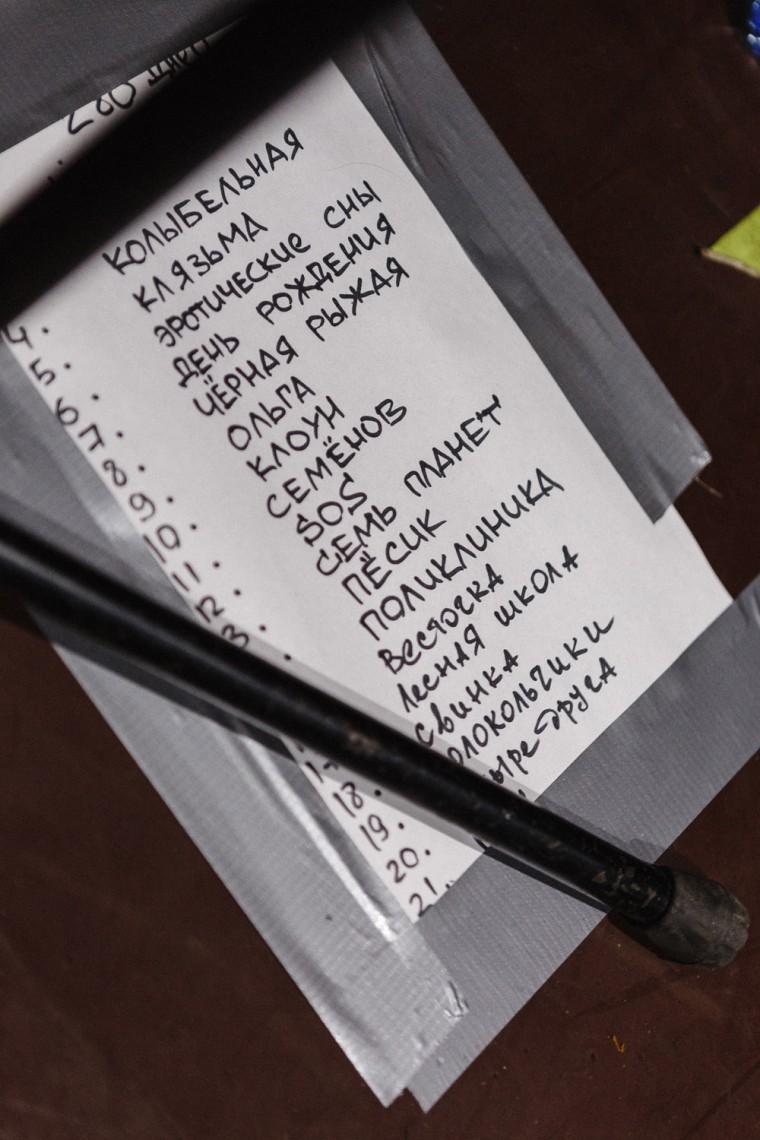 280 ДНЕЙ
КОЛЫБЕЛЬНАЯ
КЛЯЗЬМА
4. ЭРОТИЧЕСКИЕ СНЫ
5. ДЕНЬ РОЖДЕНИЯ
6. ЧЁРНАЯ РЫЖАЯ
7. ОЛЬГА
8. КЛОУН
9. СЕМЁНОВ
10. SOS
11. СЕМЬ ПЛАНЕТ
12. ПЁСИК
3. ПОЛИКЛИНИКА
Весточка
Лесная школа
Свинка
олокольчики
18. ыре друга
19.
20.
21.